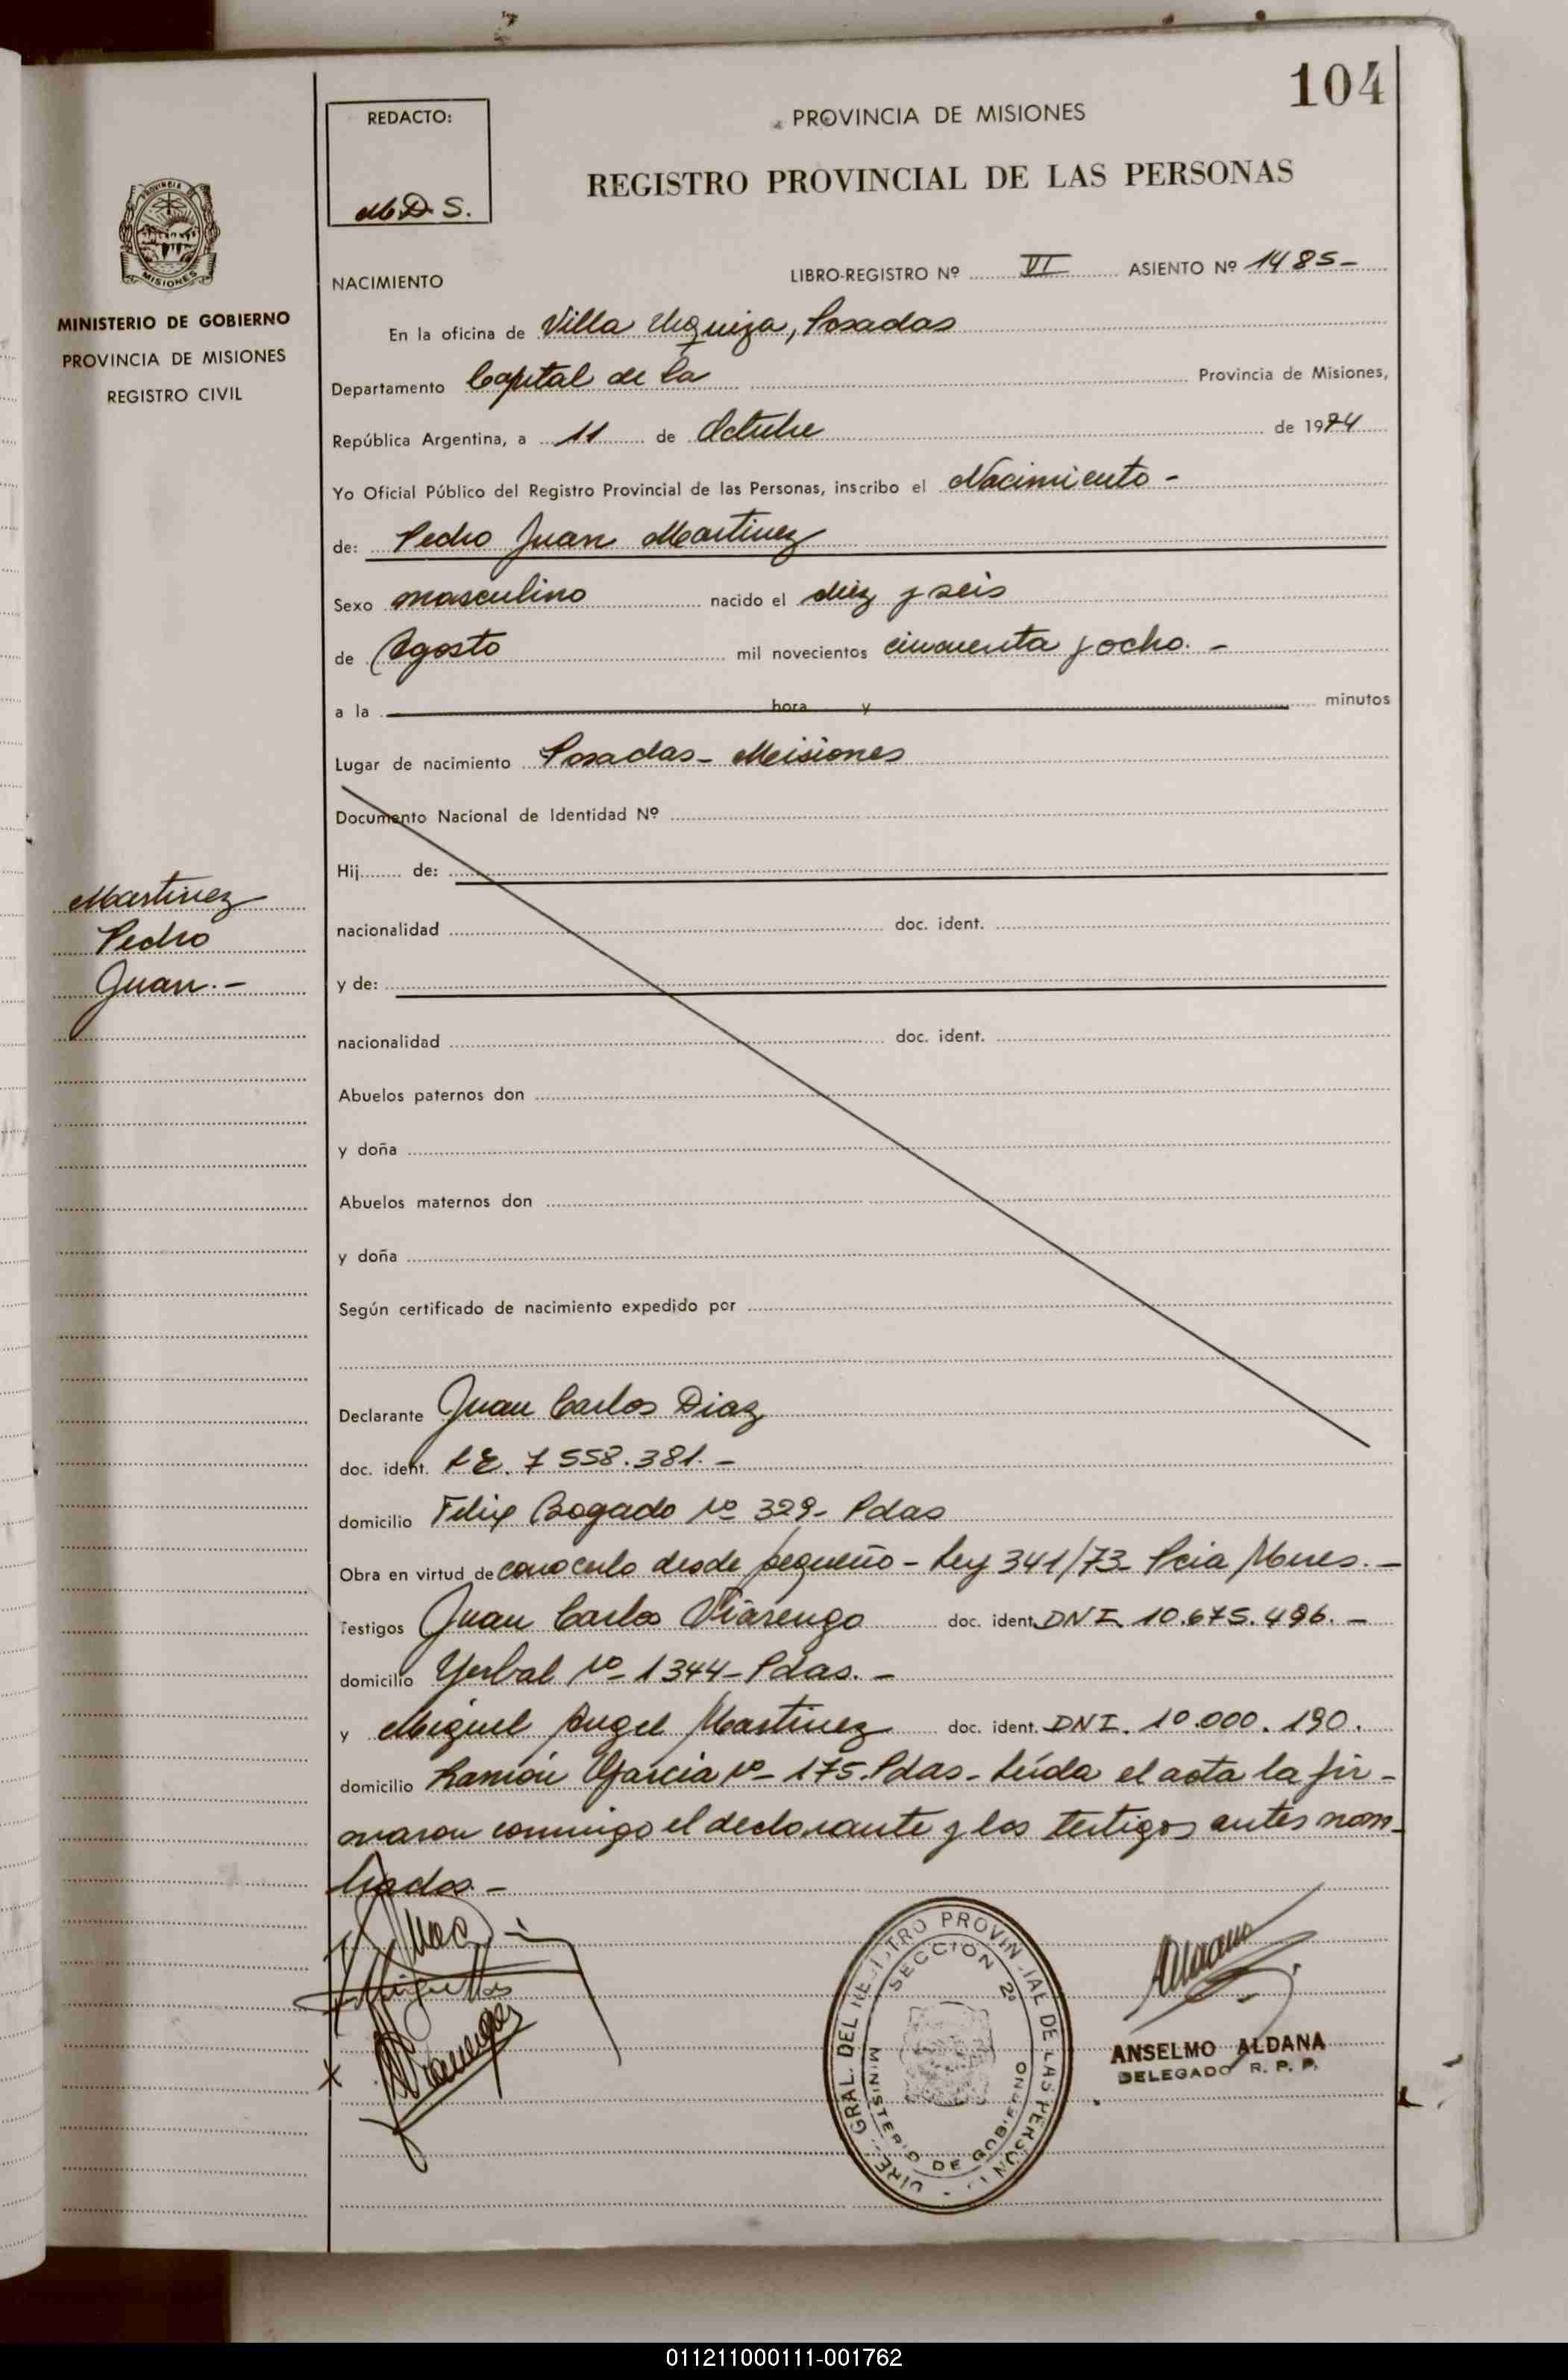 104
REDACTO:
M.D.S.
PROVINCIA DE MISIONES
REGISTRO PROVINCIAL DE LAS PERSONAS
PROVINCIA DE
MISIONES
MINISTERIO DE GOBIERNO
PROVINCIA DE MISIONES
REGISTRO CIVIL
NACIMIENTO
LIBRO-REGISTRO Nº VI ASIENTO Nº 1485-
En la oficina de Villa Urquiza, Posadas
Departamento Capital de La Provincia de Misiones,
República Argentina, a 11 de Octubre de 1974
Yo Oficial Público del Registro Provincial de las Personas, inscribo el Nacimiento -
de: Pedro Juan Martinez
Sexo masculino nacido el diez y seis
de Agosto mil novecientos cincuenta y ocho. -
a la hora y minutos
Lugar de nacimiento Posadas - Misiones
Documento Nacional de Identidad Nº
Hij de:
Martinez
Pedro
Juan. -
nacionalidad doc. ident.
y de:
nacionalidad doc. ident.
Abuelos paternos don
y doña
Abuelos maternos don
y doña
Según certificado de nacimiento expedido por
Declarante Juan Carlos Diaz
doc. ident. L.E. 7558.381. -
domicilio Felix Bogado Nº 329- Pdas
Obra en virtud de conocerlo desde pequeño - Ley 341/73- Pcia Mnes. -
Testigos Juan Carlos Viarengo doc. ident. DNI 10.675.496. -
domicilio Yerbal Nº 1344- Pdas. -
y Miguel Angel Martinez doc. ident. DNI. 10.000.190.
domicilio Ramón Garcia Nº 175- Pdas - Leída el acta la fir-
maron conmigo el declarante y los testigos antes nom-
brados. -
DIREC. GRAL. DEL REGISTRO PROVINCIAL DE LAS PERSONAS
SECCION 2ª
MINISTERIO DE GOBIERNO
ANSELMO ALDANA
DELEGADO R. P. P.
011211000111-001762